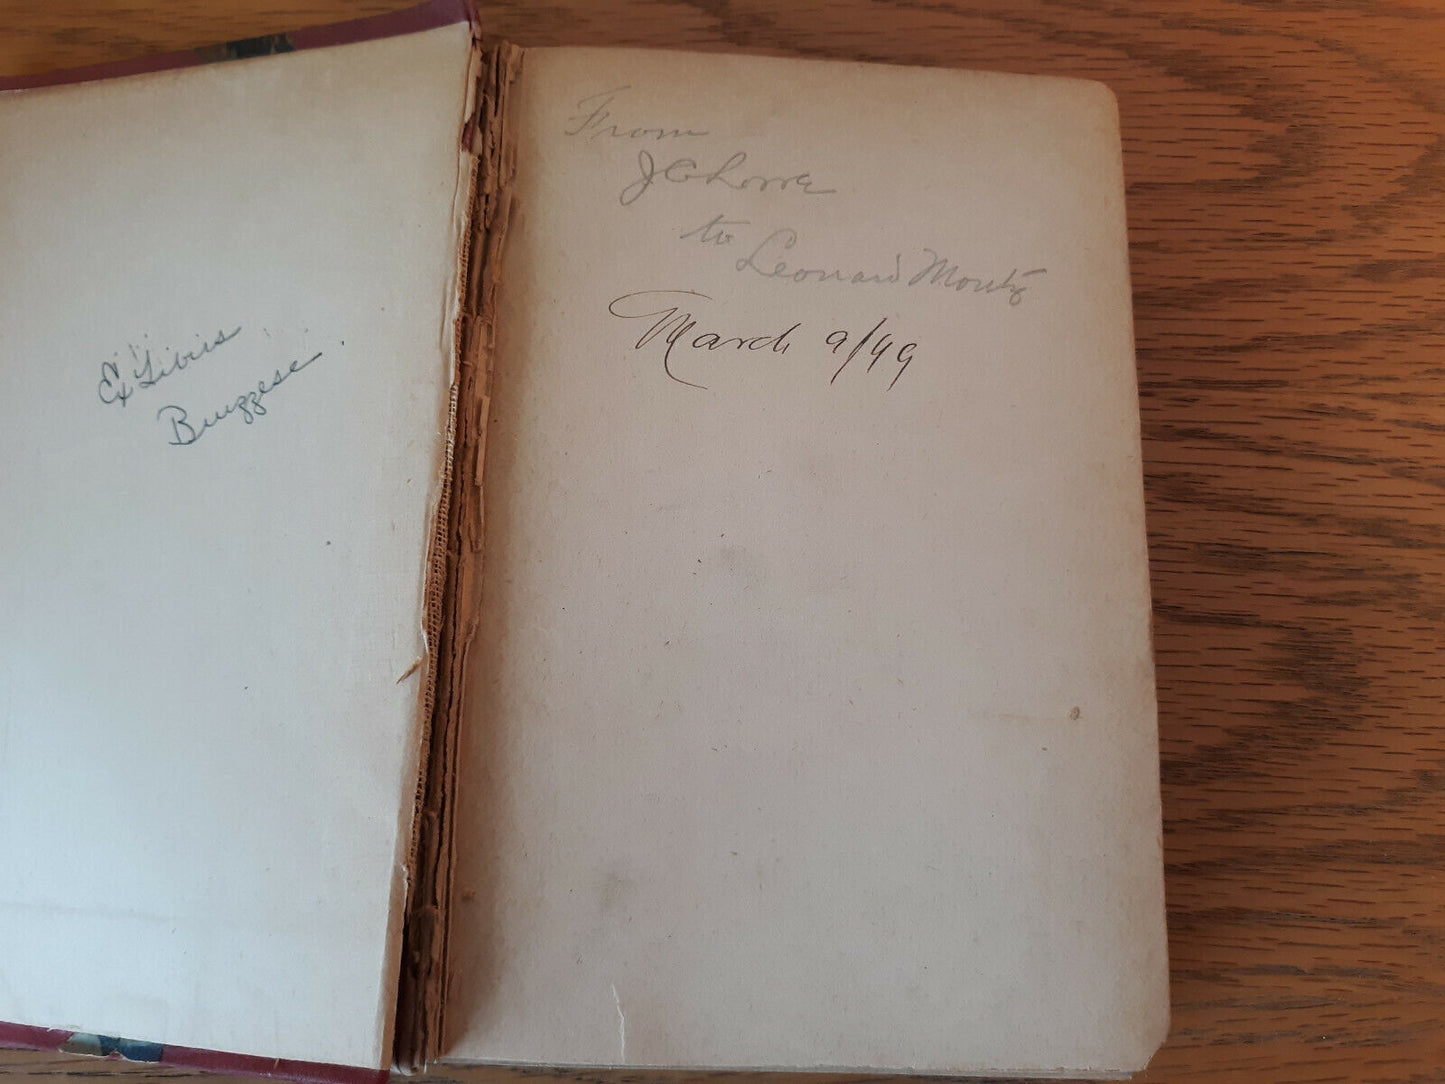 Ex Libris
Bruzzese
From
J C Lowe
to
Leonard Montz
March 9/99